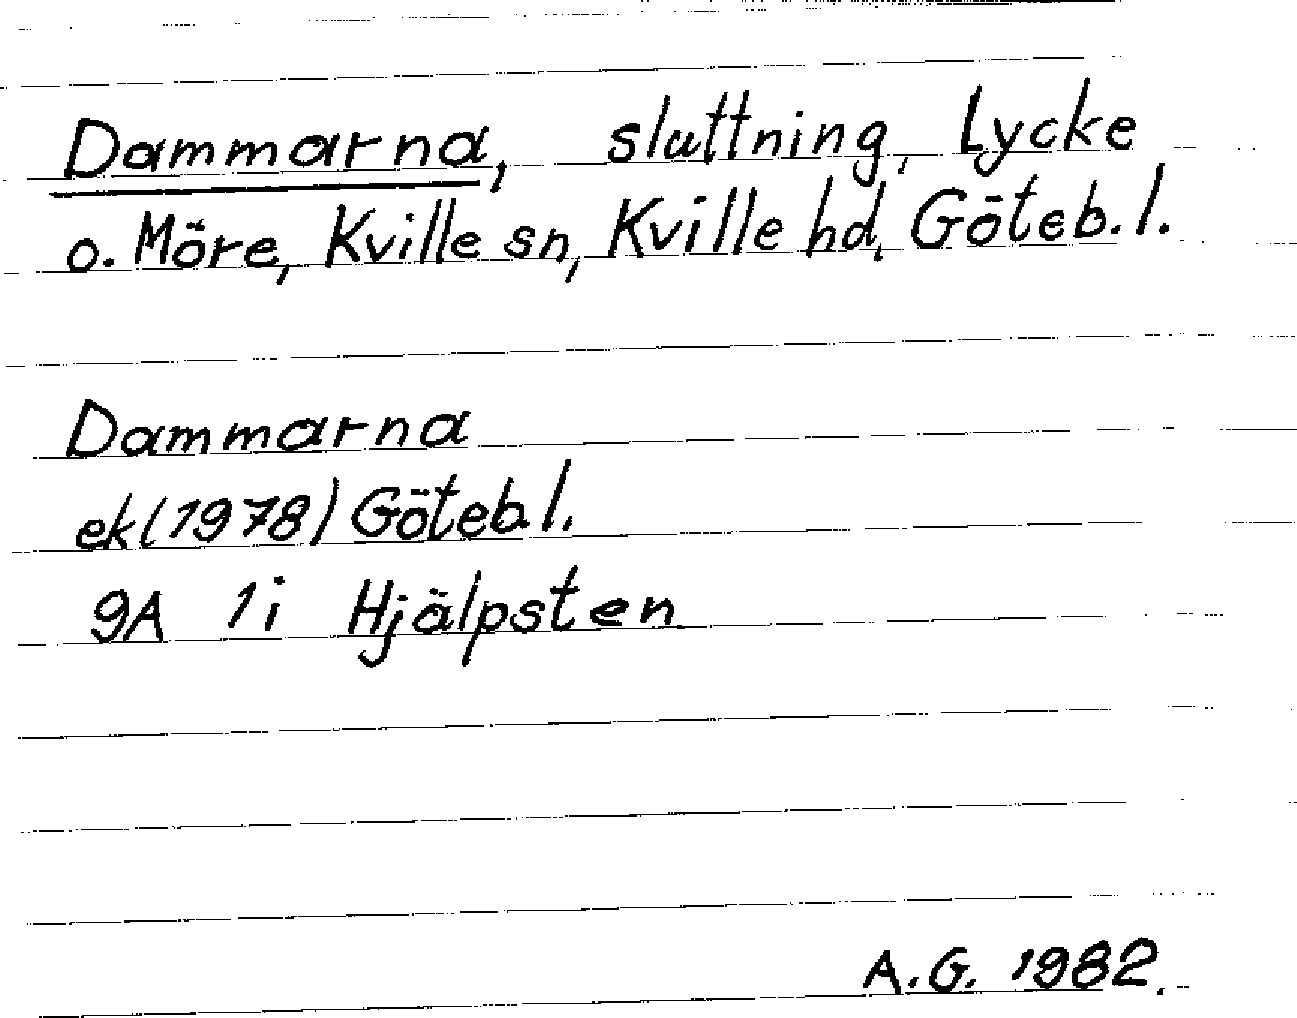 Dammarna, sluttning, Lycke
o. Möre, Kville sn, Kville hd, Göteb. l.
Dammarna
ek (1978) Göteb. l.
9A 1i Hjälpsten
A. G. 1982.